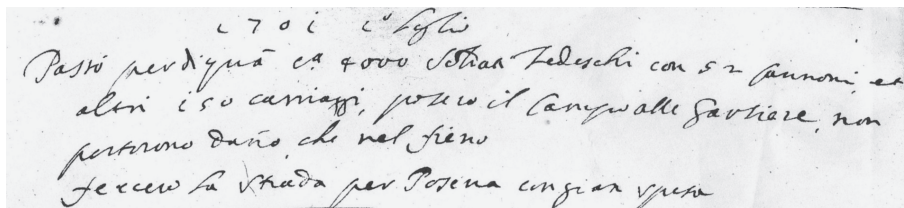 1701 1º Luglio
Passò per di quà ca 4000 Soldati Tedeschi con 52 Cannoni, et
altri 150 carriaggi, posero il Campo alle Gavliare, non
portorono dano che nel fieno
fecero La Strada per Posena con gran spesa